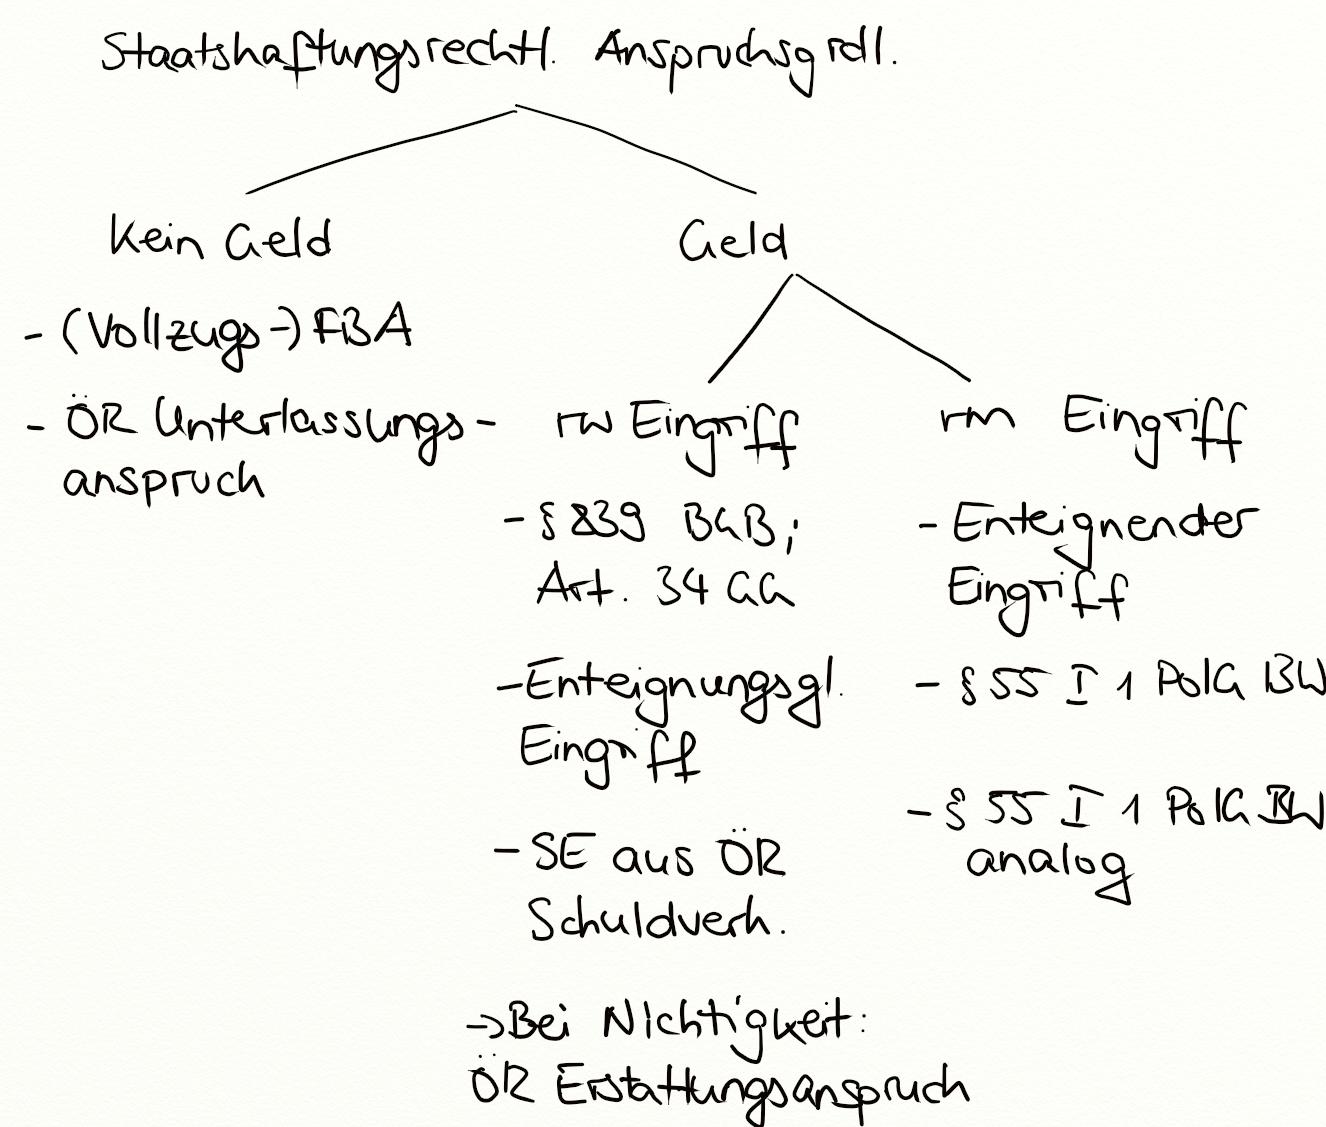 Staatshaftungsrechtl. Anspruchsgrdl.
Kein Geld
Geld
- (Vollzugs-) FBA
- ÖR Unterlassungs-
anspruch
rw Eingriff
- § 839 BGB;
Art. 34 GG
- Enteignungsgl.
Eingriff
- SE aus ÖR
Schuldverh.
→ Bei Nichtigkeit:
ÖR Erstattungsanspruch
rm Eingriff
- Enteignender
Eingriff
- § 55 I 1 PolG BW
- § 55 I 1 PolG BW
analog